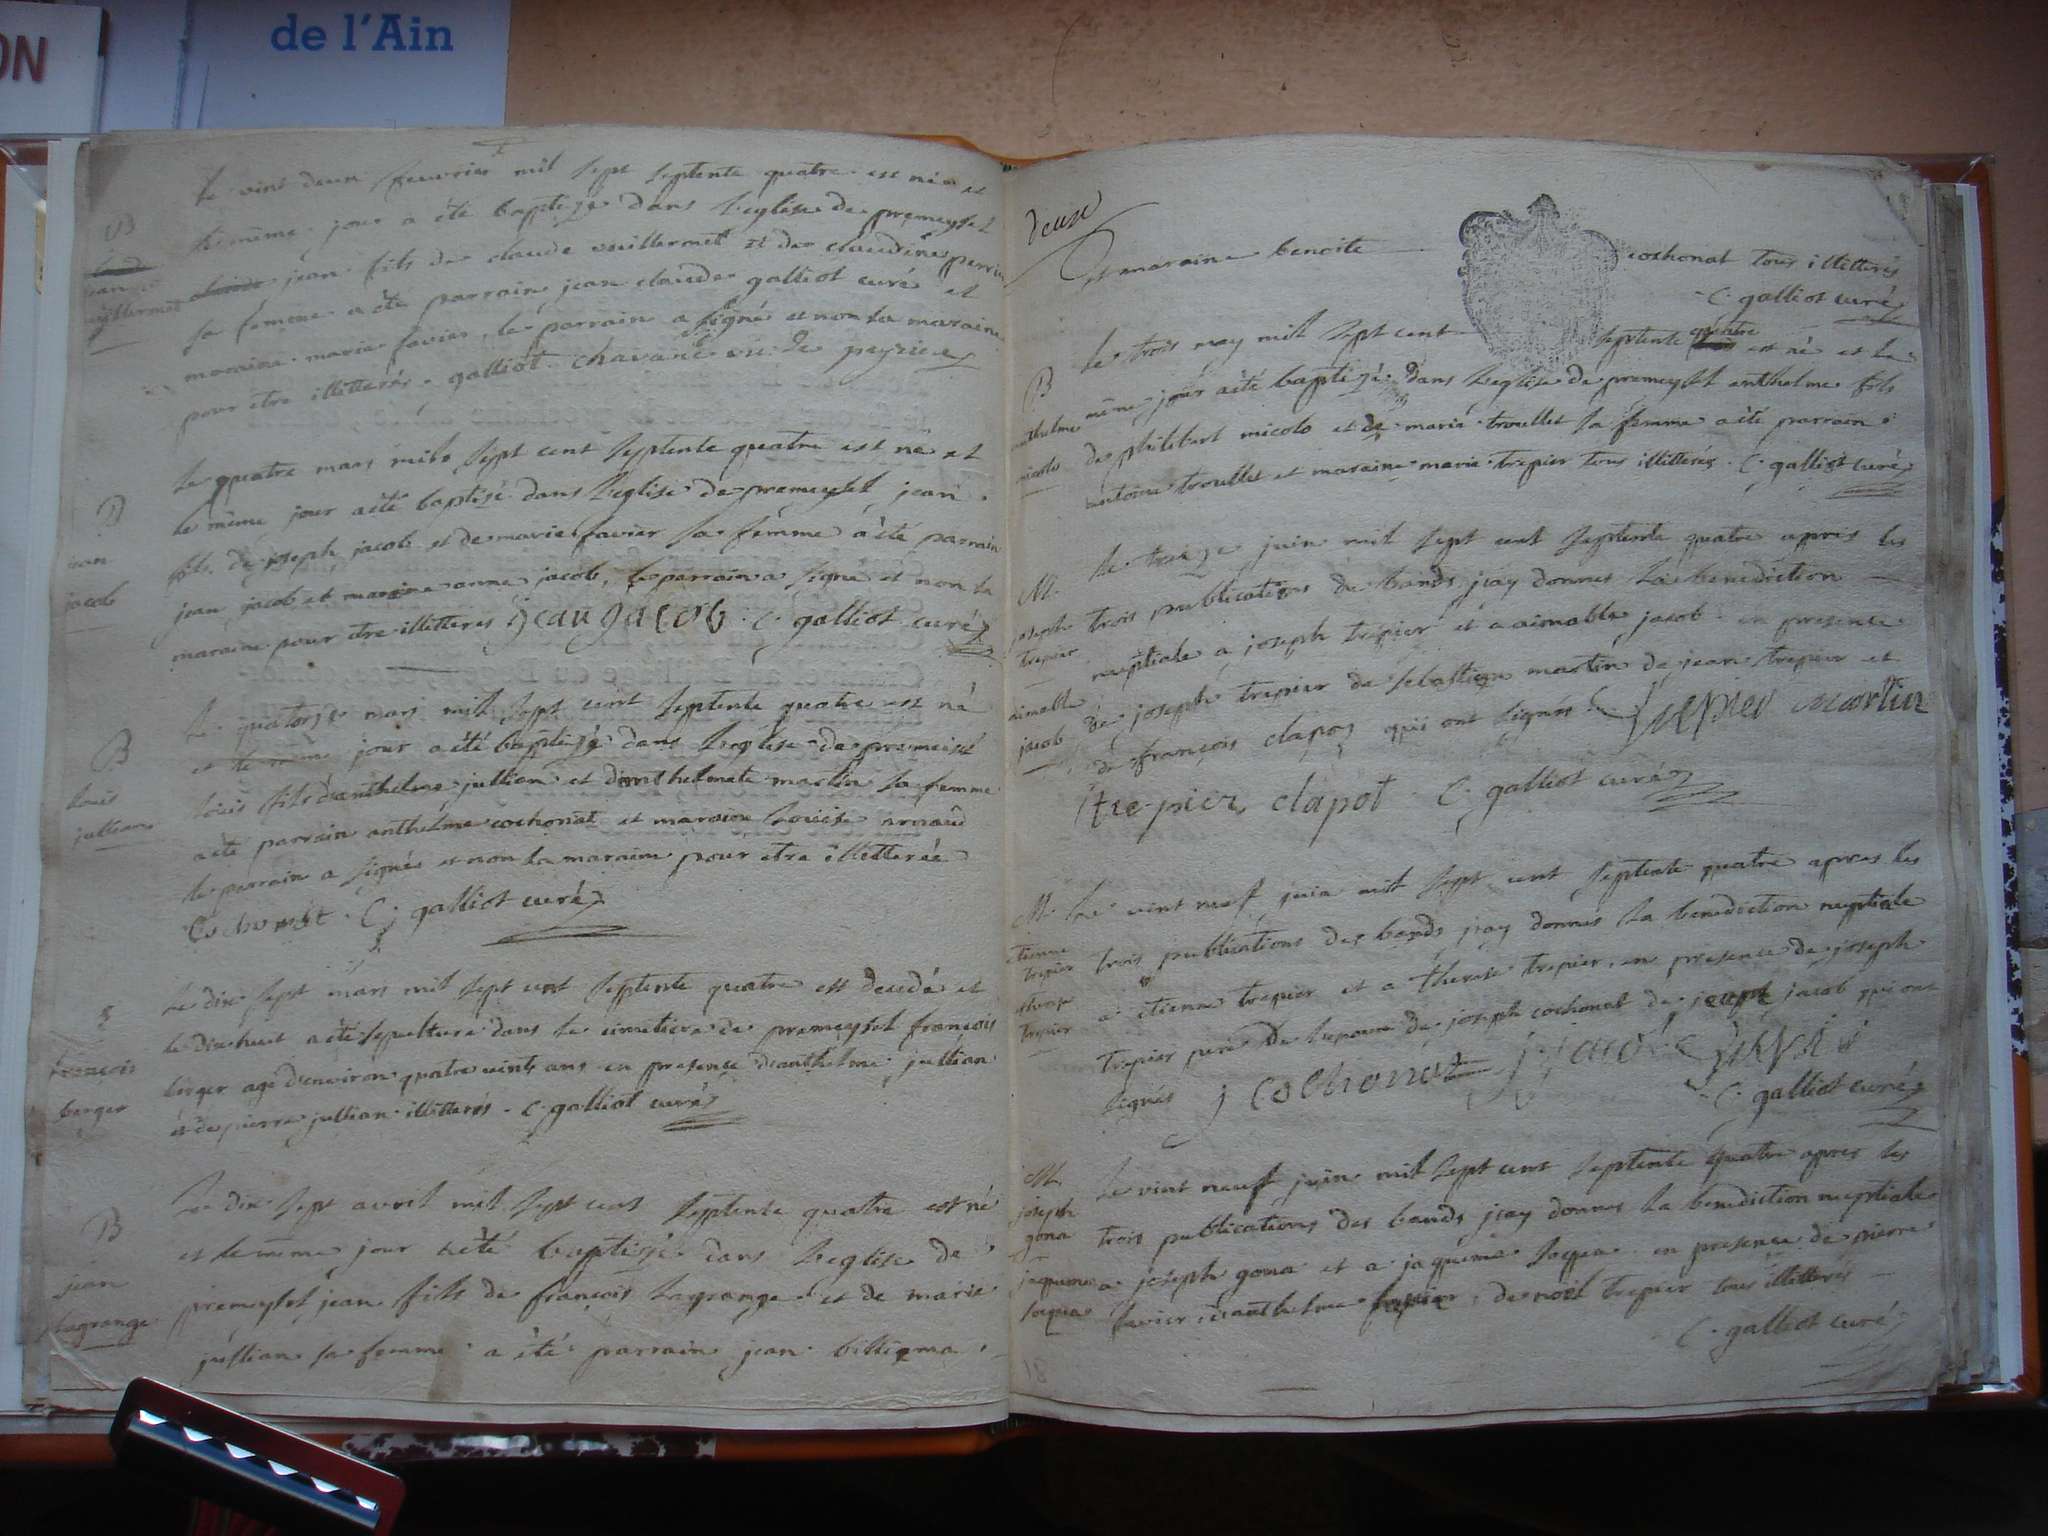 ON
de l'Ain
le vint deux feuvrier mil sept septente quatre est né et
B
le même jour a été baptizé dans l'eglise de premeyzel
jean fils de claude vuillermet et de claudine perrin
sa femme a été parrain jean claude galliot curé et
maraine marie favier, le parrain a signé et non la maraine
pour être illitterés. galliot chavane vic de peyrieu
le quatre mars mil sept cent septente quatre est né et
B
le même jour a été baptisé dans l'eglise de premeyzel jean
jean
fils de joseph jacob et de marie favier sa femme a été parrain
jacob
jean jacob et maraine anne jacob, le parrain a signé et non la
maraine pour etre illitteres jean jacob c. galliot curé
le quatorze mars mil sept cent septente quatre est né
B
et le même jour a été baptizé dans l'eglise de premeisel
louis
louis fils d'anthelme jullian et d'anthelmete martin sa femme
jullian
a été parrain anthelme cochonat et maraine louise
le parrain a signés et non la maraine pour etre illitterée
Cochonat C. galliot curé
le dix sept mars mil sept cent septente quatre est decedé et
S
le dix huit a été sepulturé dans le cimetiere de premeyzel françois
françois
berger agé d'environ quatre vints ans en presence d'anthelme jullian
berger
et de pierre jullian illitterés. c. galliot curé
Le dix sept avril mil sept cent septente quatre est né
B
et le même jour a été baptizé dans l'eglise de
jean
premeyzel jean fils de françois lagrange et de marie
lagrange
jullian sa femme a été parrain jean billiema
deux
et maraine benoite cochonat tous illitterés
c. galliot curé
le trois may mil sept cent septente quatre est né et le
B
anthelme
même jour a été baptizé dans l'eglise de premeyzel anthelme fils
micolo
de philibert micolo et de marie troullet sa femme a été parrain
antoine troullet et maraine marie trepier tous illitterés. c. galliot curé
le treize juin mil sept cent septente quatre apres les
M.
joseph
trois publications de bands j'ay donnes la benediction
trepier
nuptiale a joseph trepier et a aimable jacob en presence
aimable
de joseph trepier de sebastien martin de jean trepier et
jacob
de françois clapoz qui ont signes trepier martin
trepier clapot C. galliot curé
M.
Le vint neuf juin mil sept cent septente quatre apres les
etienne
trepier
trois publications des bands j'ay donnes la benediction nuptiale
therese
a etienne trepier et a therese trepier, en presence de joseph
trepier
trepier pere de l'epouse de joseph cochonat de joseph jacob qui ont
signés j cochonat j jacob
C. galliot curé
M.
Le vint neuf juin mil sept cent septente quatre apres les
joseph
gona
trois publications des bands j'ay donnes la benediction nuptiale
jaquema
a joseph gona et a jaquema soqua en presence de pierre
soqua
favier d'anthelme trepier, de noël trepier tous illitterés
C. galliot curé
18